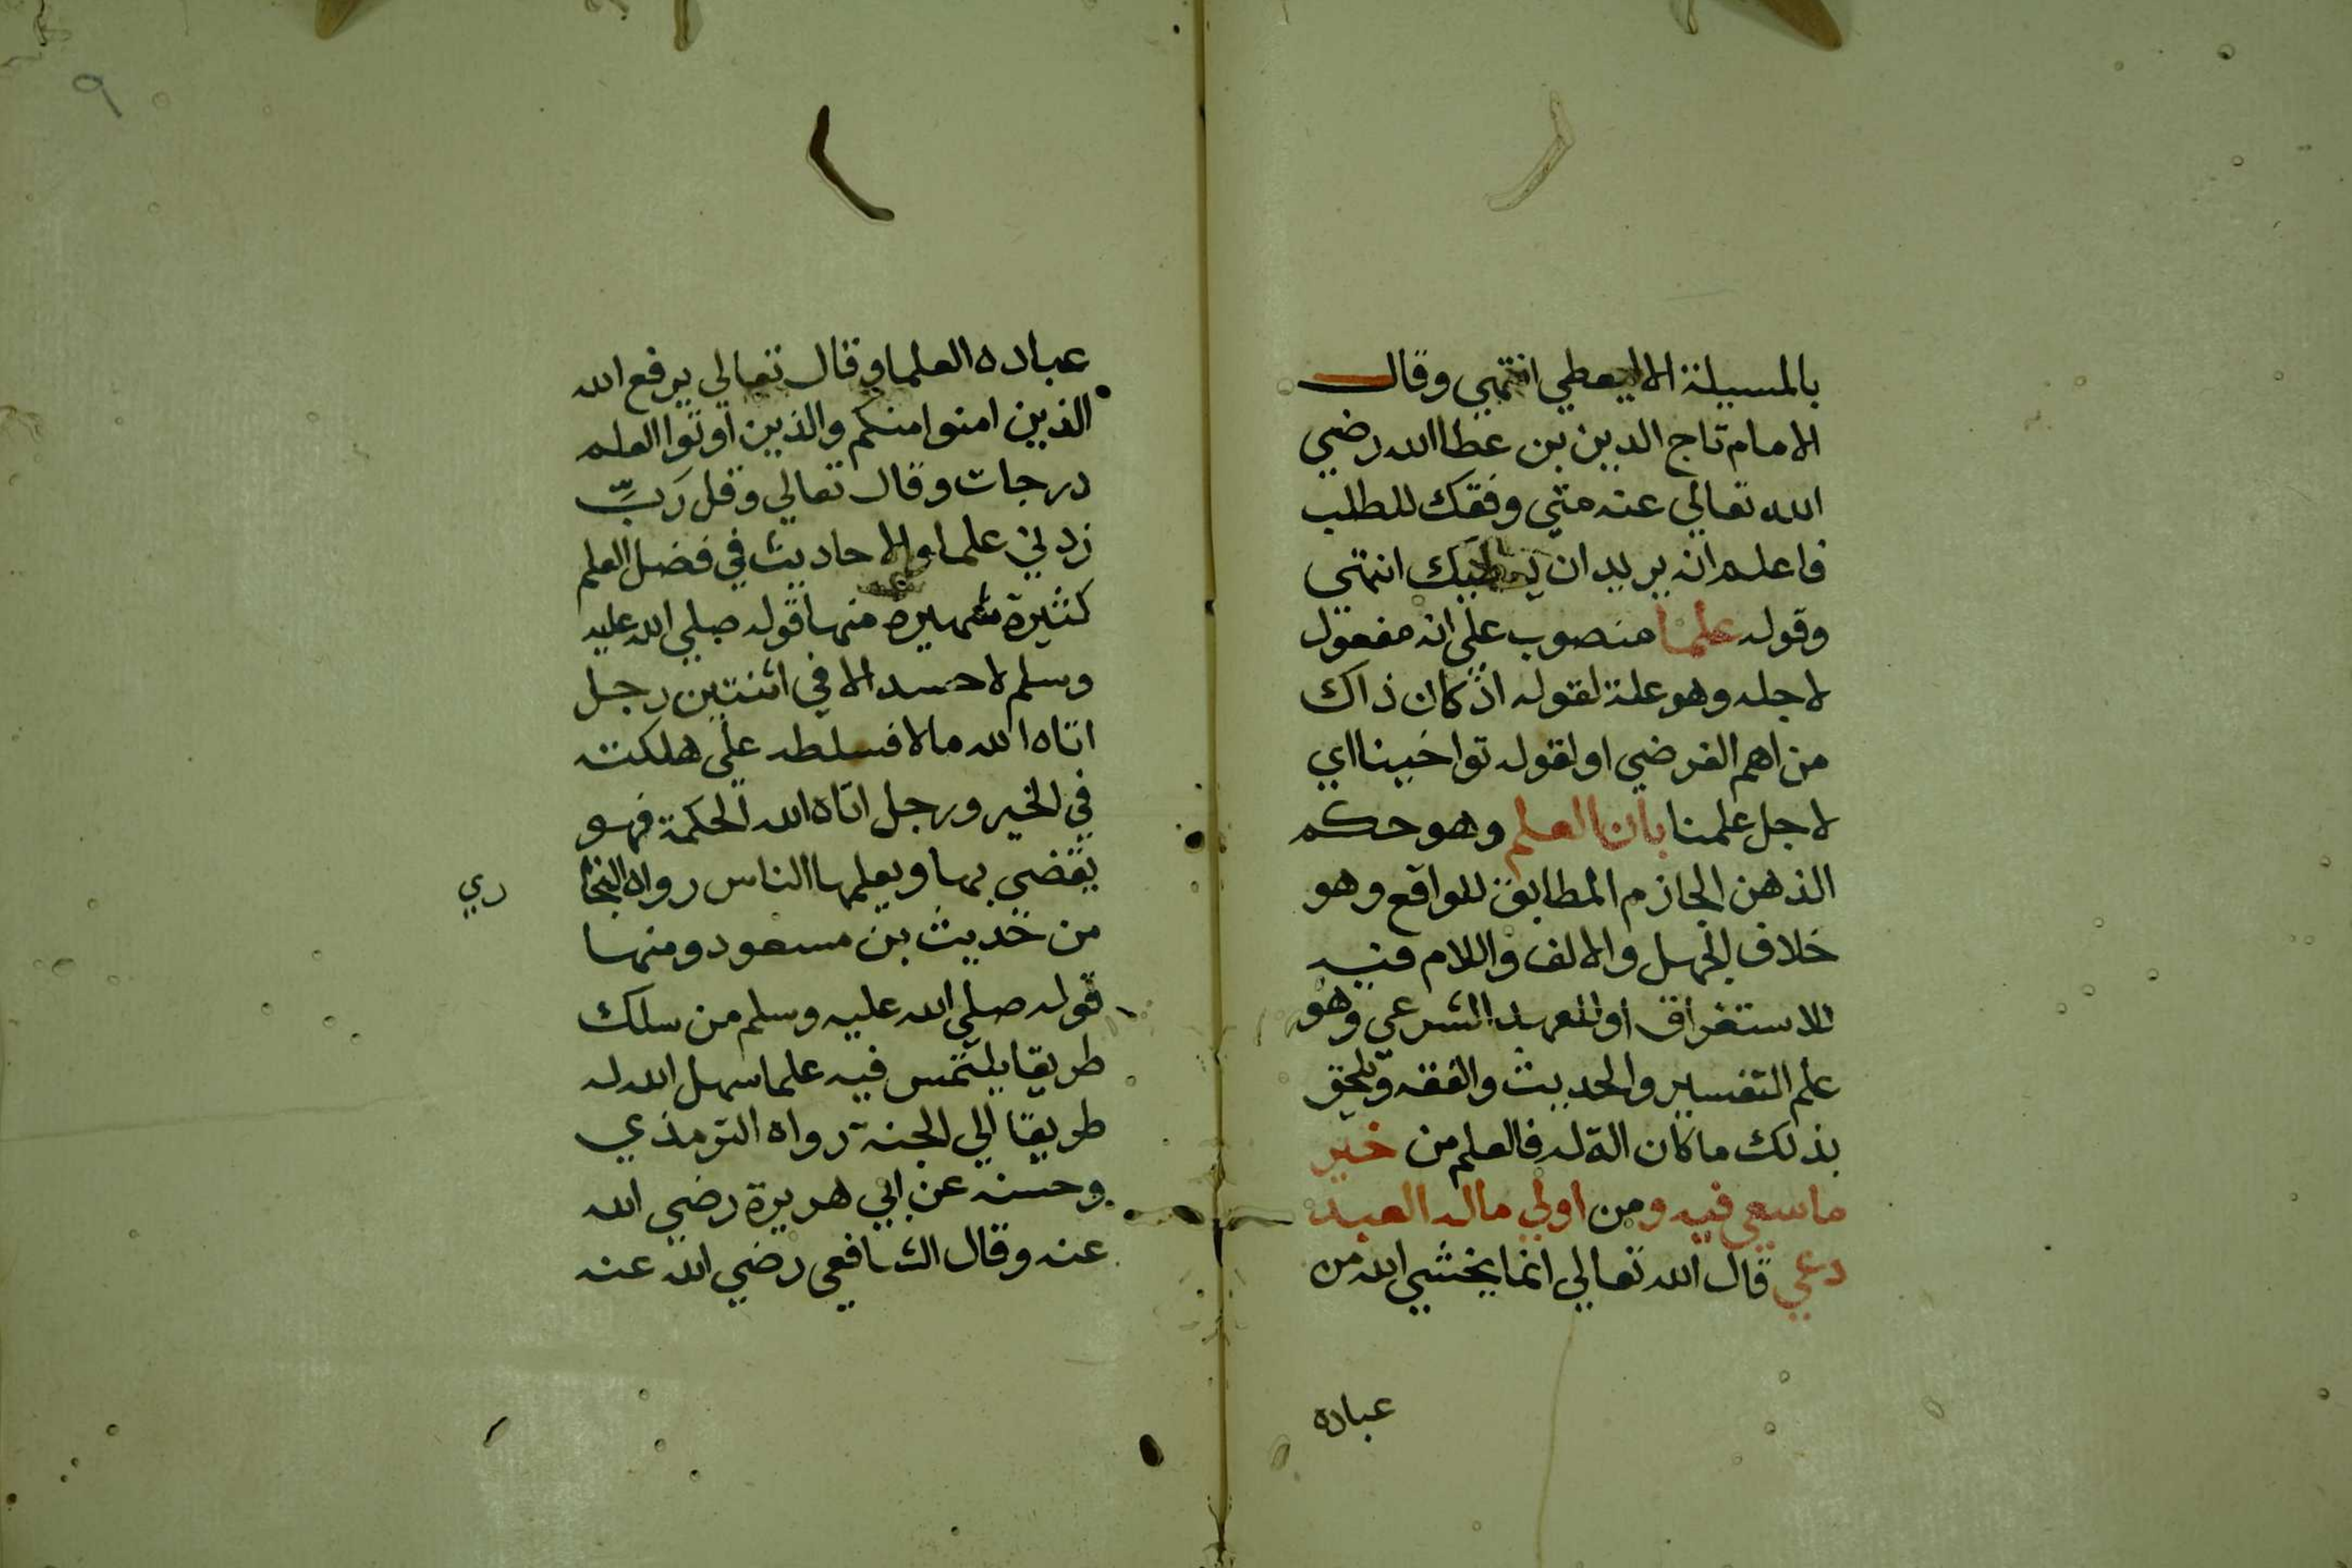 بالمسيلة الا ليعطي انتهي وقال
الامام تاج الدين بن عطا الله رضي
الله تعالي عنه متي وفقك للطلب
فاعلم انه يريد ان يعطيك انتهي
وقوله علما منصوب علي انه مفعول
لاجله وهو علة لقوله اذ كان ذاك
من اهم الفرضي او لقوله تواخينا اي
لاجل علمنا بان العلم وهو حكم
الذهن الجازم المطابق للواقع وهو
خلاف الجهل والالف واللام فيه
للاستغراق او للعهد الشرعي وهو
علم التفسير والحديث والفقه ويلحق
بذلك ما كان الة له فالعلم من خير
ما سعي فيه ومن اولي ماله العبد
دعي قال الله تعالي انما يخشي الله من
عباده
٩
عباده العلما وقال تعالي يرفع الله
الذين امنوا منكم والذين اوتوا العلم
درجات وقال تعالي وقل رَبِّ
زدني علما والاحاديث في فضل العلم
كثيرة شهيرة منها قوله صلي الله عليه
وسلم لا حسد الا في اثنتين رجل
اتاه الله مالا فسلطه علي هلكته
في الخير ورجل اتاه الله الحكمة فهو
يقضي بها ويعلمها الناس رواه البخا
ري
من حديث بن مسعود ومنها
قوله صلي الله عليه وسلم من سلك
طريقا يلتمس فيه علما سهل الله له
طريقا الي الجنة رواه الترمذي
وحسنه عن ابي هريرة رضي الله
عنه وقال الشافعي رضي الله عنه